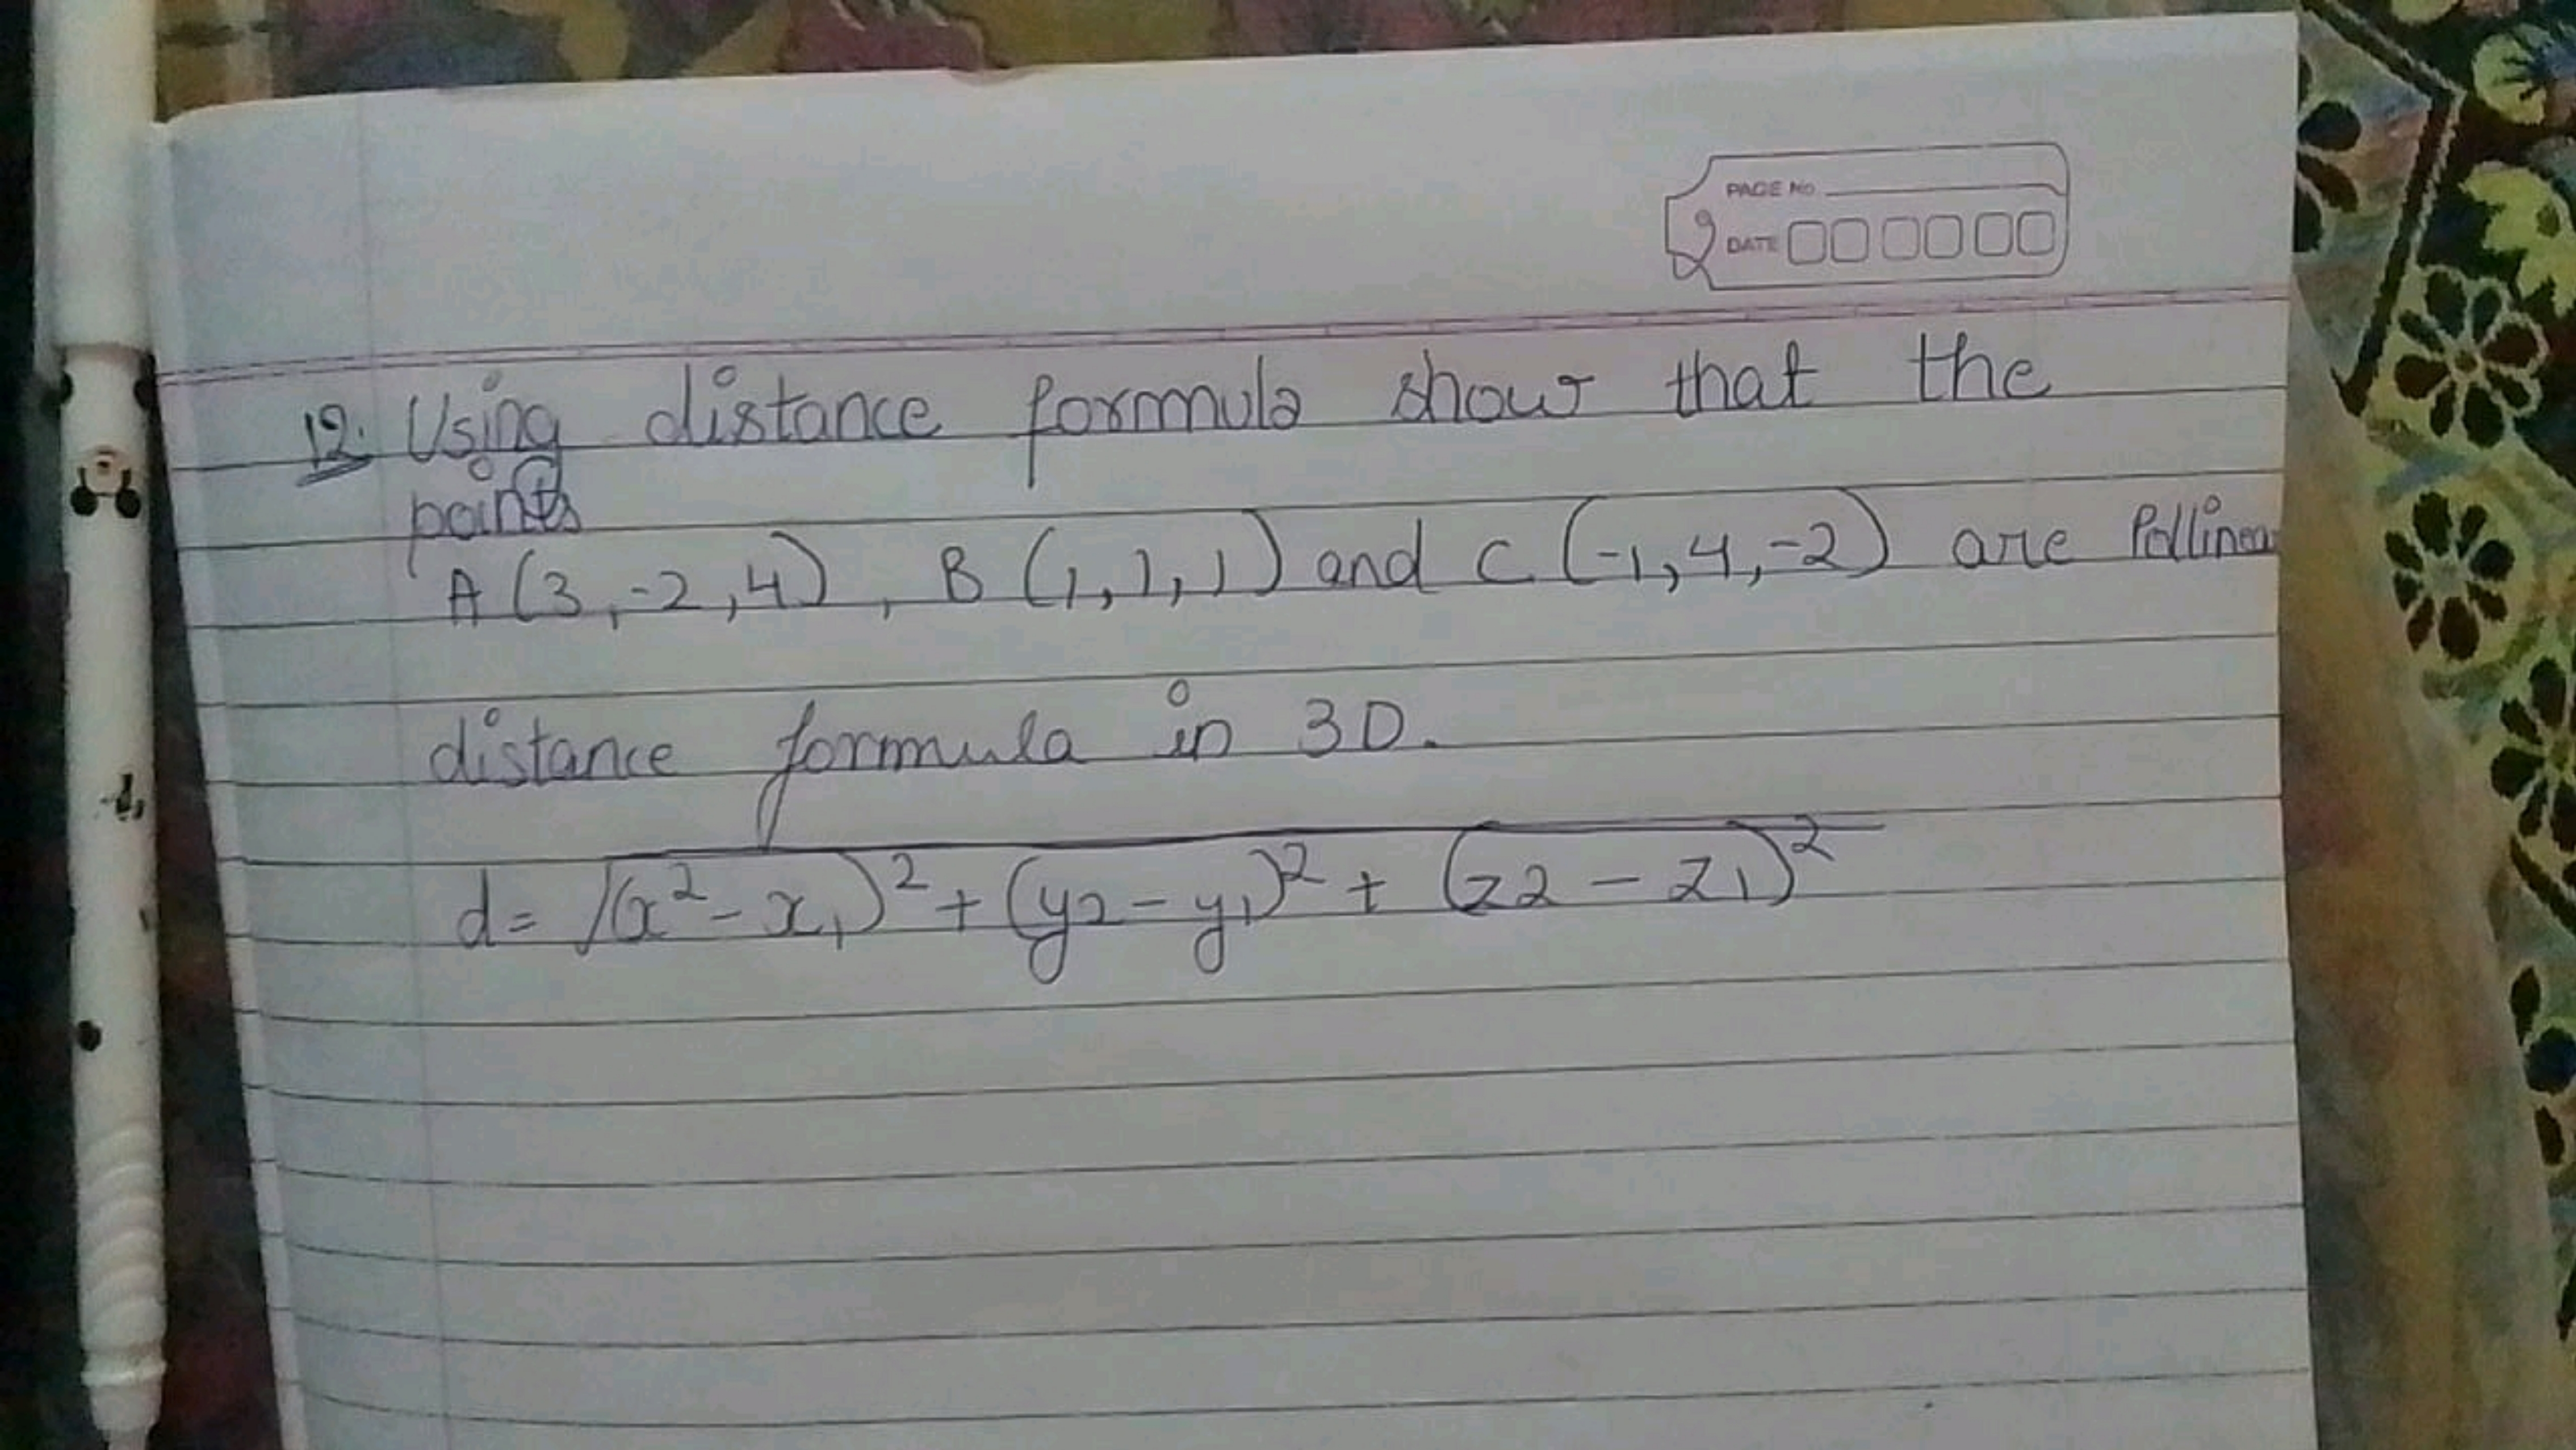 PAGE No.
DATE
12. Using distance formula show that the
points
A (3, -2, 4), B (1, 1, 1) and C (-1, 4, -2) are
distance formula in 3D.
d = √(x² - x₁)² + (y2 - y₁)² + (z2 - z₁)²